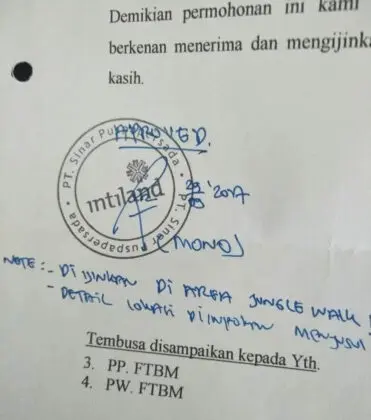 Demikian permohonan ini kami
berkenan menerima dan mengijinka
kasih.
APPROVED.
PT. Sinar Puspapersada
intiland
PT. Sinar Puspapersada
2017
(MONO)
NOTE : - DI IJINKAN DI AREA JUNGLE WALK
- DETAIL LOKASI DIINFOKAN MENYUSUL
Tembusa disampaikan kepada Yth.
3. PP. FTBM
4. PW. FTBM